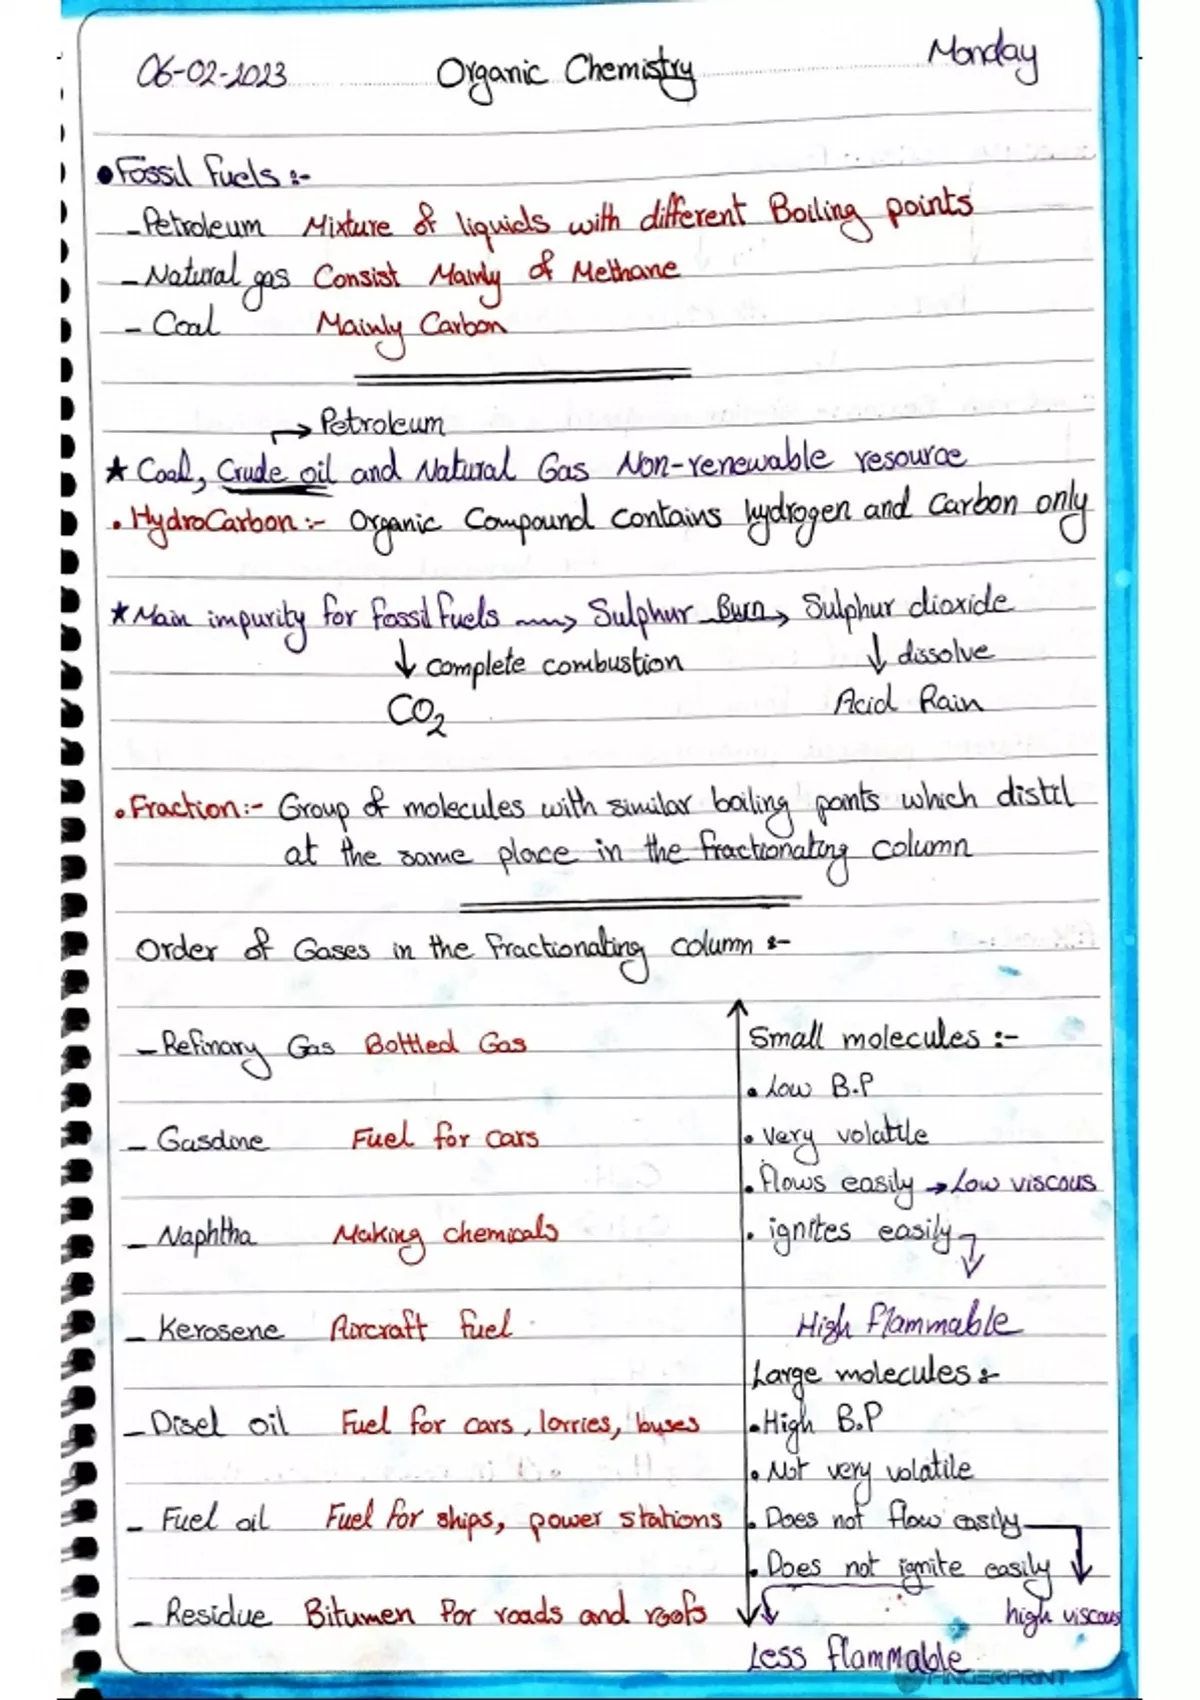 06-02-2023 Organic Chemistry Monday
• Fossil Fuels :-
- Petroleum Mixture of liquids with different Boiling points
- Natural gas Consist Mainly of Methane
- Coal Mainly Carbon
→ Petroleum
★ Coal, Crude oil and Natural Gas Non-renewable resource
• HydroCarbon :- Organic Compound contains hydrogen and Carbon only
★ Main impurity for fossil fuels → Sulphur Burn → Sulphur dioxide
↓ complete combustion ↓ dissolve
CO2 Acid Rain
• Fraction :- Group of molecules with similar boiling points which distil
at the same place in the fractionating column
Order of Gases in the fractionating column :-
- Refinary Gas Bottled Gas
- Gasoline Fuel for cars
- Naphtha Making chemicals
- Kerosene Aircraft fuel
- Disel oil Fuel for cars, lorries, buses
- Fuel oil Fuel for ships, power stations
- Residue Bitumen for roads and roofs
Small molecules :-
• Low B.P
• Very volatile
• Flows easily → Low viscous
• ignites easily
High flammable
Large molecules :-
• High B.P
• Not very volatile
• Does not flow easily
• Does not ignite easily
high viscous
Less flammable
FINGERPRINT